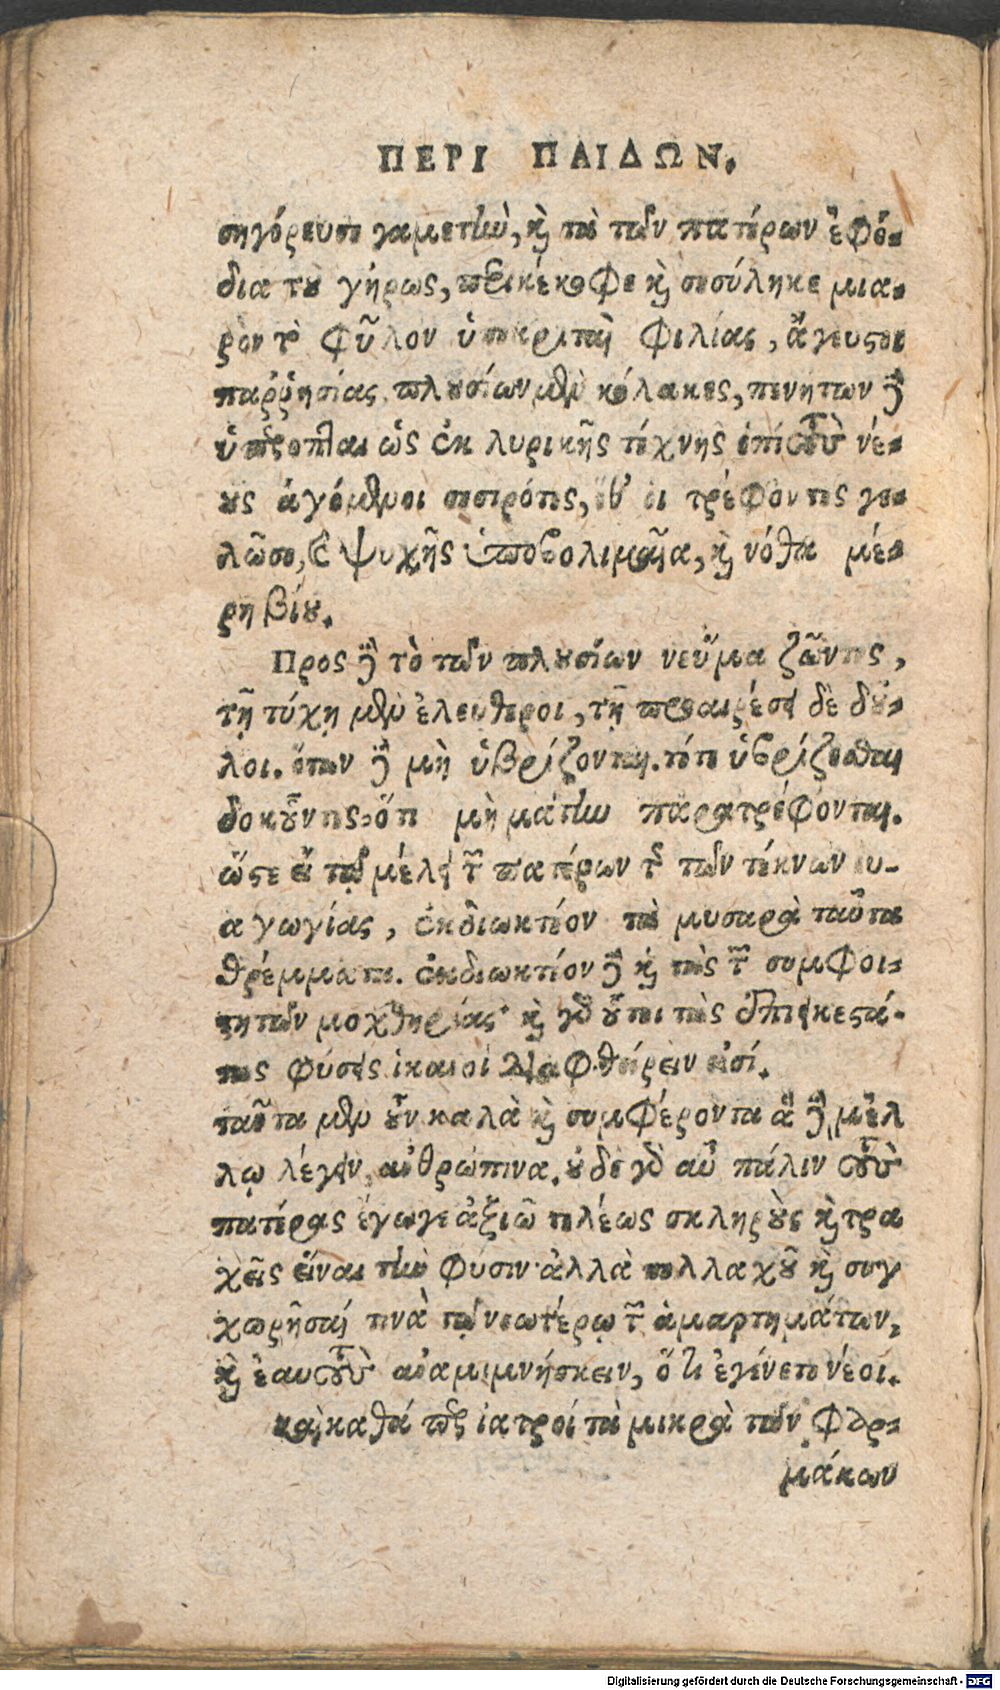 ΠΕΡΙ ΠΑΙΔΩΝ.
σηγόρευσε γαμετὴν, καὶ τὰ τῶν πατέρων ἐφό-
δια τοῦ γήρως, περικέκοφε καὶ σεσύληκε μια-
ρὸν τὸ φῦλον ὑποκριταὶ φιλίας, ἄγευστοι
παῤῥησίας. πλουσίων μὲν κόλακες, πενήτων δὲ
ὑπερόπται ὡς ἐκ λυρικῆς τέχνης ἐπὶ τοὺς νέ-
ους ἀγόμενοι σεσηρότες, ὅθ' οἱ τρέφοντες γε-
λῶσι, καὶ ψυχῆς ὑποβολιμαῖα, καὶ νόθα μέ-
ρη βίου.
Προς δὲ τὸ τῶν πλουσίων νεῦμα ζῶντες,
τῇ τύχῃ μὲν ἐλευθεροι, τῇ προαιρέσει δὲ δοῦ-
λοι. ὅταν δὲ μὴ ὑβρίζονται. τότε ὑβρίζεσθαι
δοκοῦντες. ὅτι μὴ μάτην παρατρέφονται.
ὥστε εἴ τῳ μέλει τῶν πατέρων τῆς τῶν τέκνων εὐ-
αγωγίας, ἐκδιωκτέον τὰ μυσαρὰ ταῦτα
θρέμματα. ἐκδιωκτέον δὲ καὶ τὰς τῶν συμφοι-
τητῶν μοχθηρίας· καὶ γὰρ οὗτοι τὰς ἐπιεικεστά-
τας φύσεις ἱκανοί διαφθείρειν εἰσί.
ταῦτα μὲν οὖν καλὰ καὶ συμφέροντα ἃ δὲ μέλ
λω λέγειν, ἀνθρώπινα. οὐδε γὰρ αὖ πάλιν τοὺς
πατέρας ἔγωγε ἀξιῶ τελέως σκληροὺς καὶ τρα
χεῖς εἶναι τὴν φύσιν· ἀλλὰ πολλαχοῦ καὶ συγ
χωρῆσαί τινὰ τῷ νεωτέρῳ τῶν ἁμαρτημάτων,
καὶ ἑαυτοὺς ἀναμιμνήσκειν, ὅτι ἐγένετο νέοι.
καὶ καθά περ ἰατροί τὰ μικρὰ τῶν φαρ-
μάκων
Digitalisierung gefördert durch die Deutsche Forschungsgemeinschaft - DFG